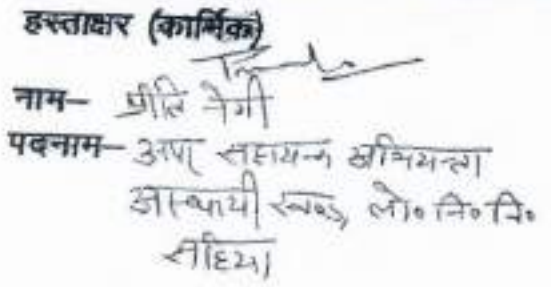 हस्ताक्षर (कार्मिक)
नाम– प्रीति नेगी
पदनाम– अपर सहायक अभियन्ता
अस्थायी खण्ड, लो० नि० वि०
सहिया